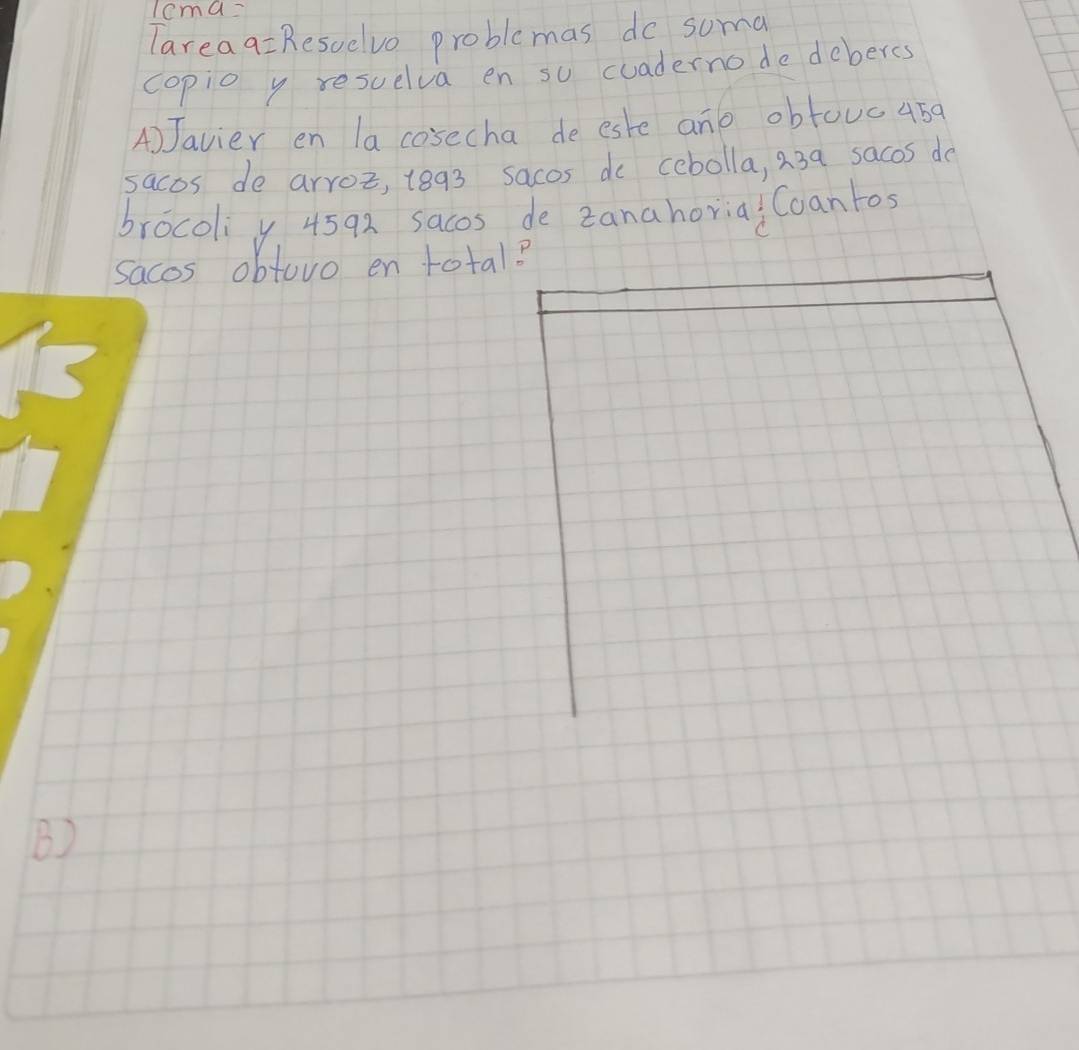 Tema=
Tarea 9=Resuelvo problemas de suma
copio y resuelva en su cuaderno de deberes
A) Javier en la cosecha de este año obtuvo 459
sacos de arroz, 1893 sacos de cebolla, 239 sacos de
brócoli y 4592 sacos de zanahoria¿Cuantos
sacos obtuvo en total?
B)